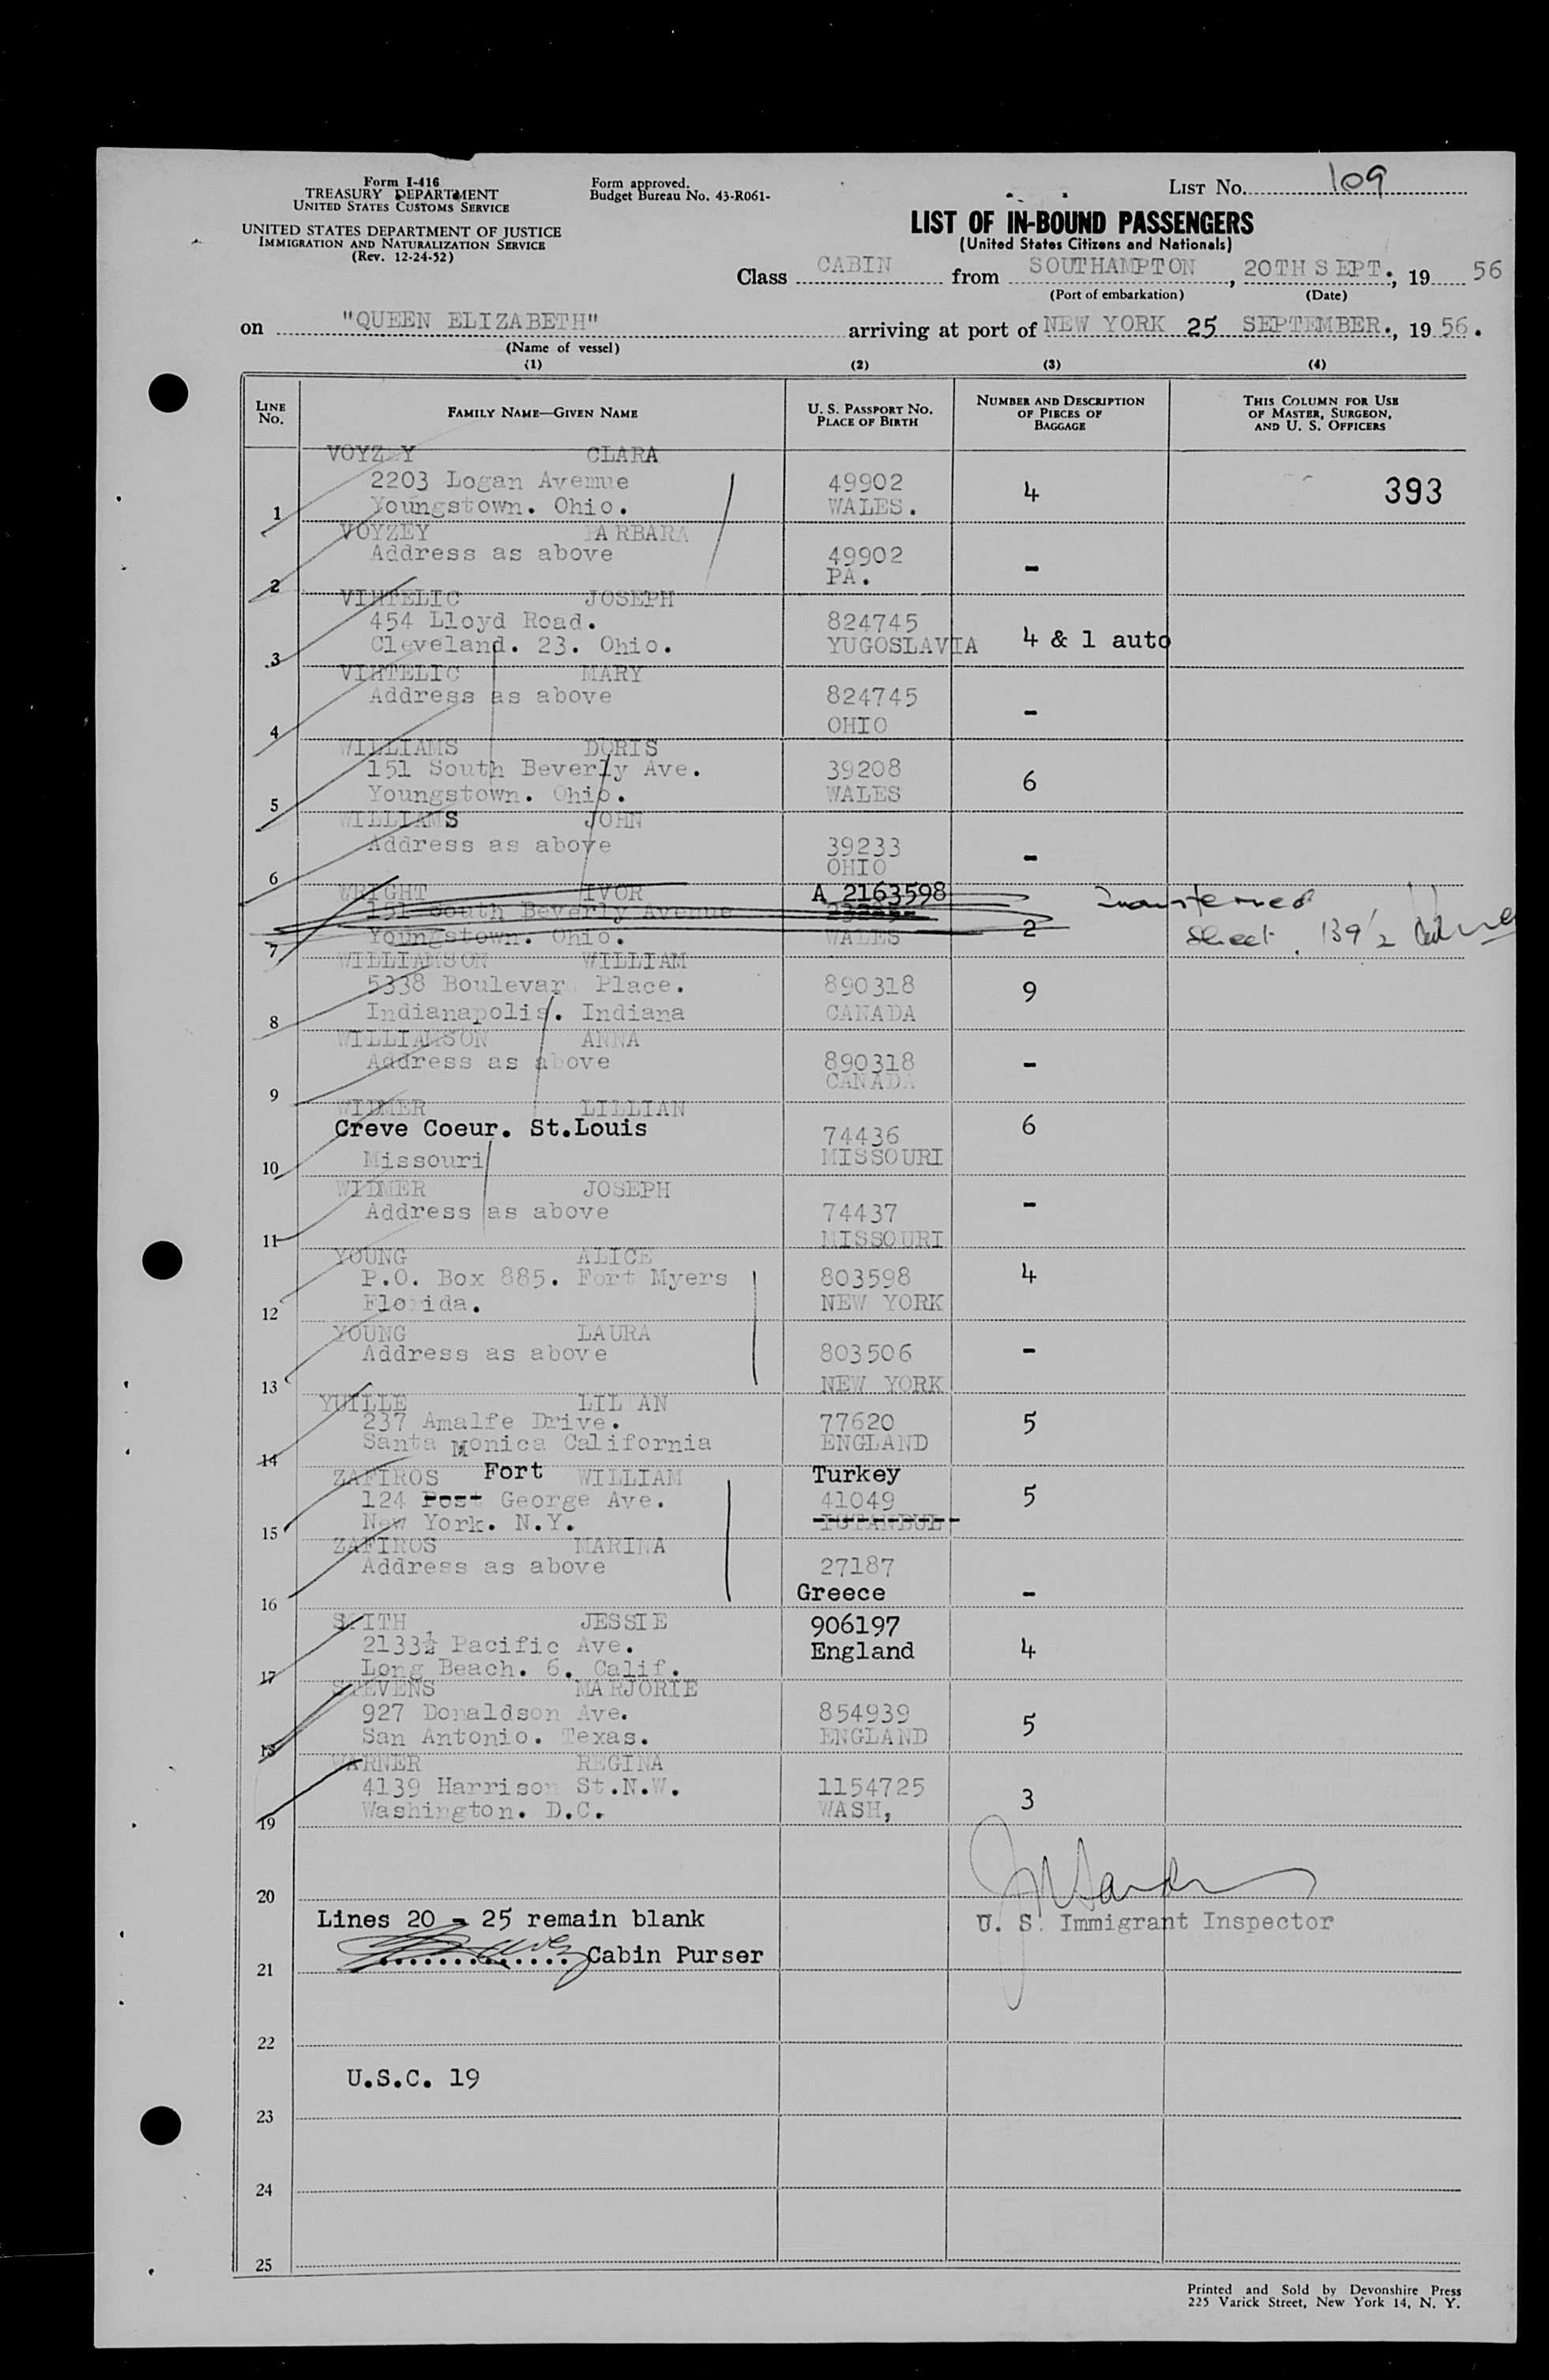 Form I-416
TREASURY DEPARTMENT
UNITED STATES CUSTOMS SERVICE
UNITED STATES DEPARTMENT OF JUSTICE
IMMIGRATION AND NATURALIZATION SERVICE
(Rev. 12-24-52)
Form approved.
Budget Bureau No. 43-R061-
LIST No. 109
LIST OF IN-BOUND PASSENGERS
(United States Citizens and Nationals)
Class CABIN from SOUTHAMPTON, 20TH SEPT., 19 56
(Port of embarkation) (Date)
on "QUEEN ELIZABETH" arriving at port of NEW YORK 25 SEPTEMBER., 19 56.
(Name of vessel)
(1) (2) (3) (4)
LINE No. FAMILY NAME—GIVEN NAME U. S. PASSPORT NO. PLACE OF BIRTH NUMBER AND DESCRIPTION OF PIECES OF BAGGAGE THIS COLUMN FOR USE OF MASTER, SURGEON, AND U. S. OFFICERS
VOYZEY CLARA
2203 Logan Avenue 49902 4 393
1 Youngstown. Ohio. WALES.
VOYZEY BARBARA
Address as above 49902 -
2 PA.
VIHTELIC JOSEPH
454 Lloyd Road. 824745
3 Cleveland. 23. Ohio. YUGOSLAVIA 4 & 1 auto
VIHTELIC MARY
Address as above 824745 -
4 OHIO
WILLIAMS DORIS
151 South Beverly Ave. 39208 6
5 Youngstown. Ohio. WALES
WILLIAMS JOHN
Address as above 39233 -
6 OHIO
WRIGHT IVOR A 2163598 Transferred
151 South Beverly Avenue
7 Youngstown. Ohio. WALES 2 Sheet 139 1/2
WILLIAMSON WILLIAM
5338 Boulevar Place. 890318 9
8 Indianapolis. Indiana CANADA
WILLIAMSON ANNA
Address as above 890318 -
9 CANADA
WIDMER LILLIAN
Creve Coeur. St.Louis 74436 6
10 Missouri MISSOURI
WIDMER JOSEPH
Address as above 74437 -
11 MISSOURI
YOUNG ALICE
P.O. Box 885. Fort Myers 803598 4
12 Florida. NEW YORK
YOUNG LAURA
Address as above 803506 -
13 NEW YORK
YUILLE LILIAN
237 Amalfe Drive. 77620 5
14 Santa Monica California ENGLAND
ZAFIROS Fort WILLIAM Turkey
124 Post George Ave. 41049 5
15 New York. N.Y. ISTANBUL
ZAFIROS MARINA
Address as above 27187
16 Greece -
SMITH JESSIE 906197
2133½ Pacific Ave. England 4
17 Long Beach. 6. Calif.
STEVENS MARJORIE
927 Donaldson Ave. 854939 5
18 San Antonio. Texas. ENGLAND
WARNER REGINA
4139 Harrison St.N.W. 1154725 3
19 Washington. D.C. WASH,
20
Lines 20 - 25 remain blank U. S. Immigrant Inspector
21 ............. Cabin Purser
22
U.S.C. 19
23
24
25
Printed and Sold by Devonshire Press
225 Varick Street, New York 14, N. Y.